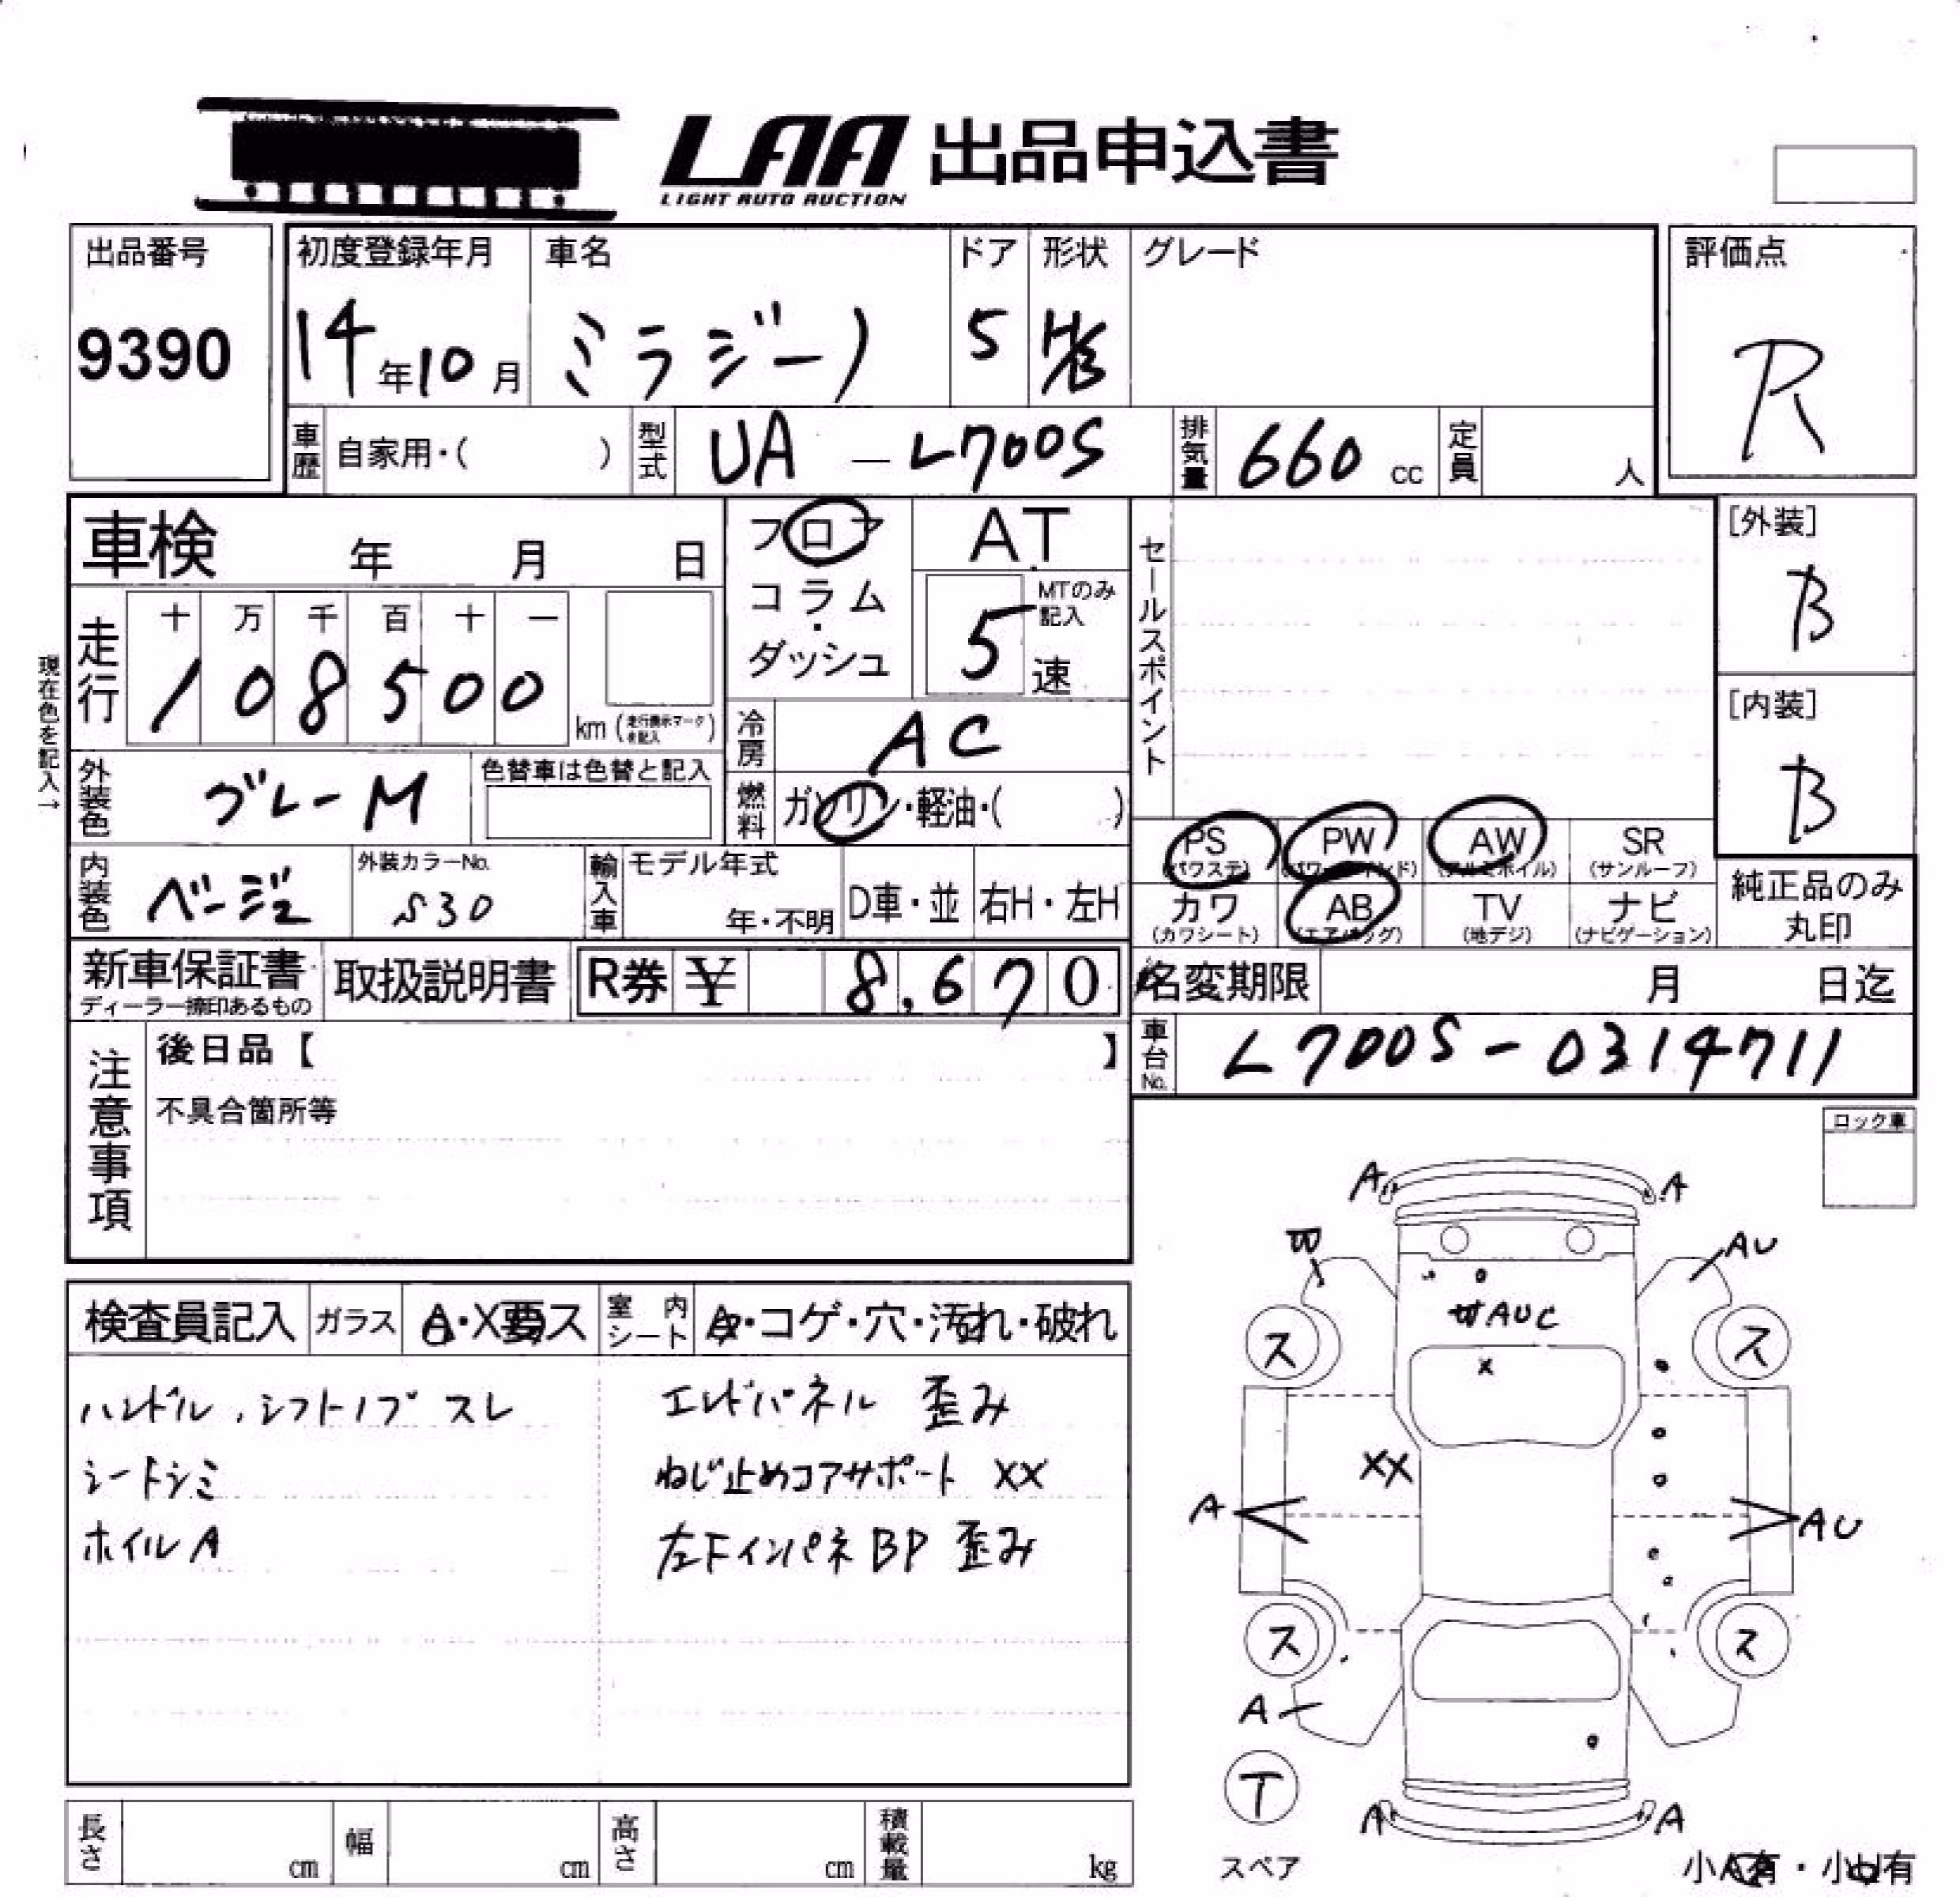 LAA 出品申込書
LIGHT AUTO AUCTION
出品番号 初度登録年月 車名 ドア 形状 グレード 評価点
9390 14年10月 ミラジーノ 5 R
車歴 自家用・( ) 型式 UA - L700S 排気量 660 cc 定員 人
車検 年 月 日 フロア AT セールスポイント [外装]
コラム・ 5 速 MTのみ記入 B
ダッシュ
走行 十 万 千 百 十 一
1 0 8 5 0 0 km (走行表示マーク未記入)
現在色を記入→
冷房 AC [内装]
外装色 グレーM 色替車は色替と記入 燃料 ガソリン・軽油・( ) B
PS (パワステ) PW (パワーウインド) AW (アルミホイル) SR (サンルーフ)
内装色 ベージュ 外装カラーNo. S30 輸入車 モデル年式 年・不明 D車・並 右H・左H
カワ (カワシート) AB (エアバッグ) TV (地デジ) ナビ (ナビゲーション) 純正品のみ丸印
新車保証書 取扱説明書 R券 ¥ 8,670 名変期限 月 日迄
ディーラー捺印あるもの
車台No. L700S-0314711
注意事項 後日品【 】
不具合箇所等
ロック車
検査員記入 ガラス A・X要ス 室内シート ・コゲ・穴・汚れ・破れ
ハンドル、シフトノブ スレ エンドパネル 歪み
シートシミ ねじ止めコアサポート XX
ホイルA 左下インパネBP 歪み
A A
W AU
AUC
ス ス
X
XX
A AU
ス ス
A
T
A A
スペア
長さ cm 幅 cm 高さ cm 積載量 kg
小A有・小U有